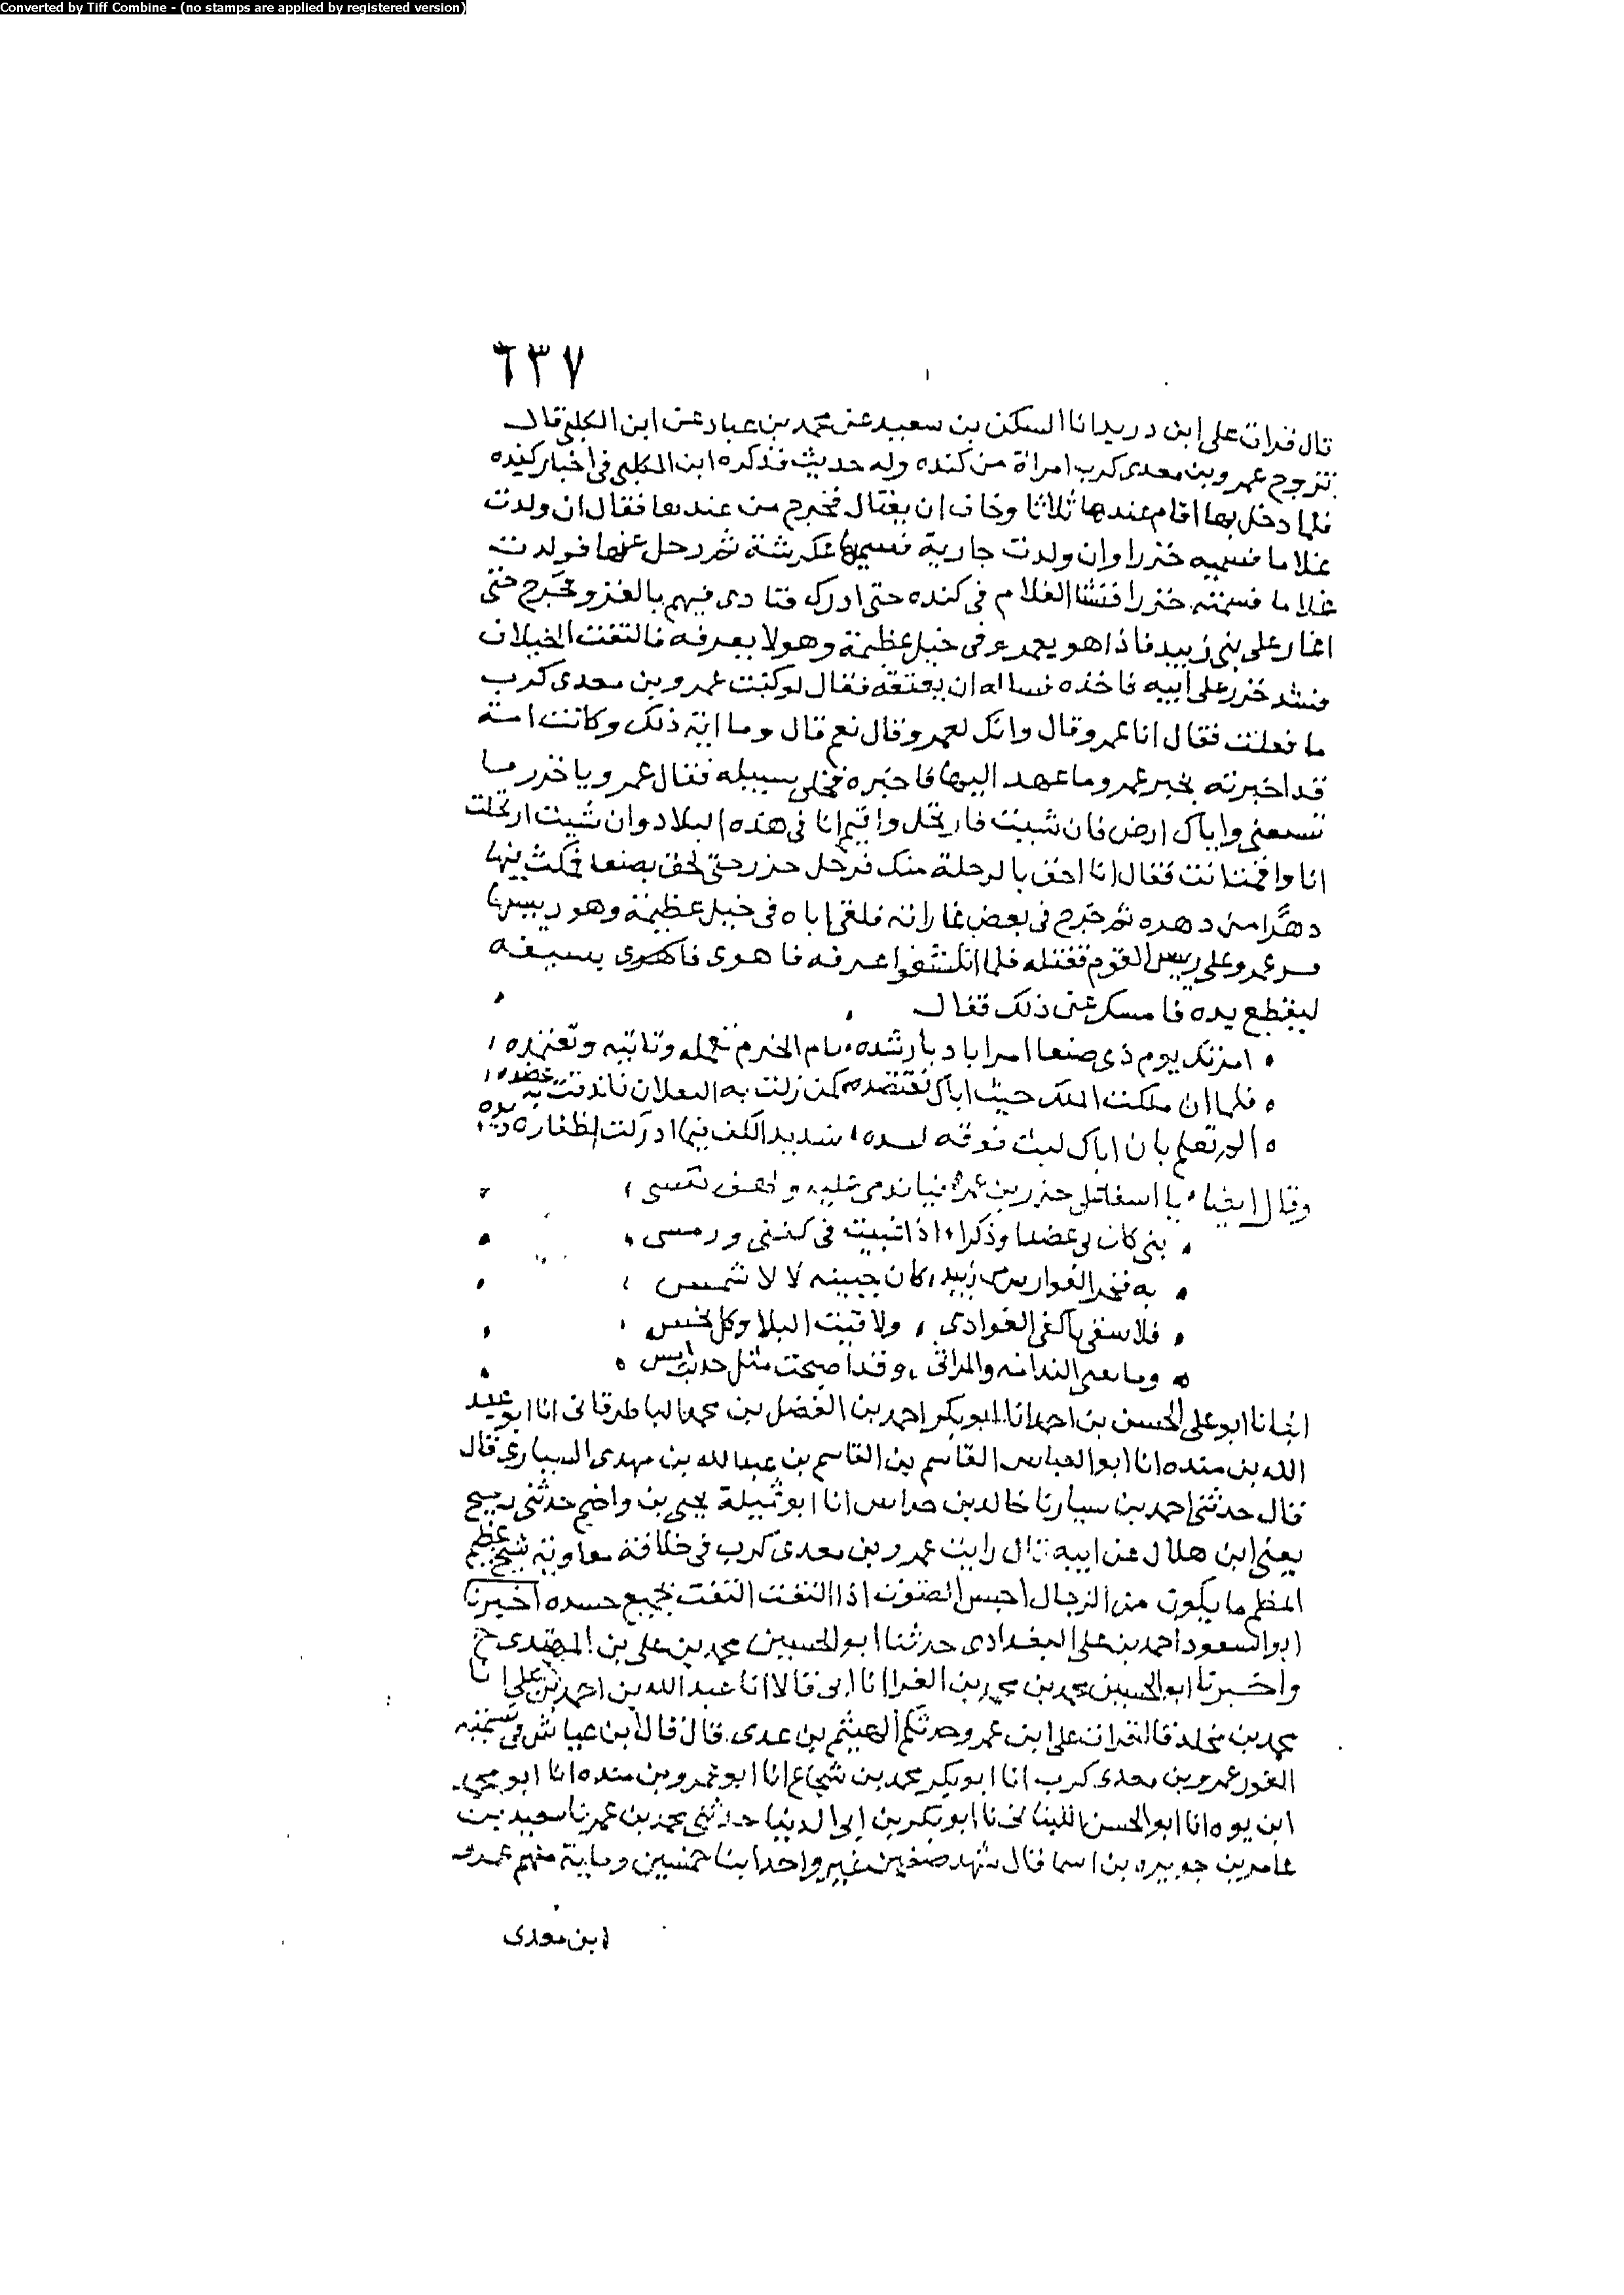 Converted by Tiff Combine - (no stamps are applied by registered version)
٦٣٧
قال قرات على ابن دريد انا السكن بن سعيد عن محمد بن عباد عن ابن الكلبي قال
تزوج عمرو بن معدى كرب امراة من كنده وله حديث قد ذكره ابن الكلبي في اخبار كنده
فلما دخل بها اقام عندها ثلاثا وخاف ان يغتال فخرج من عندها فقال ان ولدت
غلاما فسميه خزرا وان ولدت جارية فسميها عكرشة ثم رحل عنها فولدت
غلاما فسمته خزرا فنشا الغلام في كنده حتى ادرك فنادى فيهم بالغزو فخرج حتى
اغار على بنى زبيد فاذا هو بعمرو في خيل عظيمة وهو لا يعرفه فالتقت الخيلان
فشد خزر على ابيه فاخذه فساله ان يعتقه فقال لو كنت عمرو بن معدى كرب
ما فعلت فقال انا عمرو قال وانك لعمرو قال نعم قال وما اية ذلك وكانت امه
قد اخبرته بخبر عمرو وما عهد اليها فاخبره فخلى سبيله فقال عمرو يا خزر ما
تسعنى واياك ارض فان شيت فارتحل واقيم انا في هذه البلاد وان شيت ارتحلت
انا واقمت انت فقال انا احق بالرحلة منك فرحل خزر حتى لحق بصنعا فمكث فيها
دهرا من دهره ثم خرج في بعض غاراته فلقى اباه في خيل عظيمة وهو رييسها
عمرو على رييس القوم فقتله فلما انكشفوا عرفه فاهوى فاهوى بسيفه
ليقطع يده فامسك عن ذلك فقال
امرتك يوم ذى صنعا امرا باديا رشده
فلما ان ملكت الملك
الم تعلم بان اباك ليث فوقه لبده شديد الكف
وقال ايضا يا اسفا على خزر بن عمرو فيا ندمى عليه ولهف نفسى
بنى كان لى عضدا وذكرا اذا في كفنى ورمسى
به فخر الفوارس من زبيد كان جبينه لالا شمس
فلا سقى باكفى الغوادى ولا البلا وكل نحس
وما تغنى الندامه والمراثى وقد اصبحت مثل حديث امس
انبانا ابو على الحسن بن احمد انا ابو بكر احمد بن الفضل بن محمد الباطرقانى انا ابو عبد
الله بن منده انا ابو العباس القاسم بن القاسم بن عبد الله بن مهدى السيارى قال
قال حدثنى احمد بن سيار نا خالد بن انا ابو تميلة يحيى بن واضح حدثنى رميح
يعنى ابن هلال عن ابيه قال رايت عمرو بن معدى كرب في خلافة معاوية شيخ عظيم
اعظم ما يكون من الرجال اجش الصوت اذا التفت التفت بجميع جسده اخبرنا
ابو السعود احمد بن على البغدادى حدثنا ابو الحسين محمد بن على بن المهتدى ح
واخبرنا ابو الحسين محمد بن محمد بن الفرا انا ابى قالا انا عبد الله بن احمد بن على انا
محمد بن مخلد قال قرات على ابن عمرو حدثكم الهيثم بن عدى قال قال ابن عياش في تسميه
العور عمرو بن معدى كرب انا ابو بكر محمد بن شجاع انا ابو عمرو بن منده انا ابو محمد
ابن يوه انا ابو الحسن اللنبانى نا ابو بكر بن ابى الدنيا حدثنى محمد بن عمر نا سعيد بن
عامر بن جويريه بن اسما قال شهد صفين غير واحد ابنا خمسين وماية منهم عمرو
ابن معدى